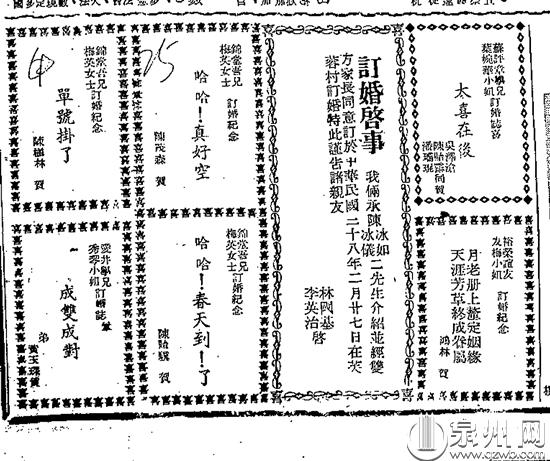 蘇評章學兄
葉婉華小姐
訂婚誌喜
大喜在後
吳澤滄
陳貽霖
潘瑤琨
仝賀
裕榮誼友
友梅小姐
訂婚紀念
月老册上釐定姻緣
天涯芳草終成眷屬
鴻林 賀
訂婚啓事
我倆承陳冰如冰儀二先生介紹並經雙
方家長同意訂於中華民國二十八年二月廿七日在茨
蓉村訂婚特此謹告諸親友
林國基
李英治
啓
錦棠吾兄
梅英女士
訂婚紀念
哈哈！真好空
陳茂森 賀
25
錦棠吾兄
梅英女士
訂婚紀念
哈哈！春天到！了
陳貽騤 賀
錦棠吾兄
梅英女士
訂婚紀念
單號掛了
陳植林 賀
秀琴小姐
訂婚誌
成雙成對
弟
泉州网
www.qzwb.com